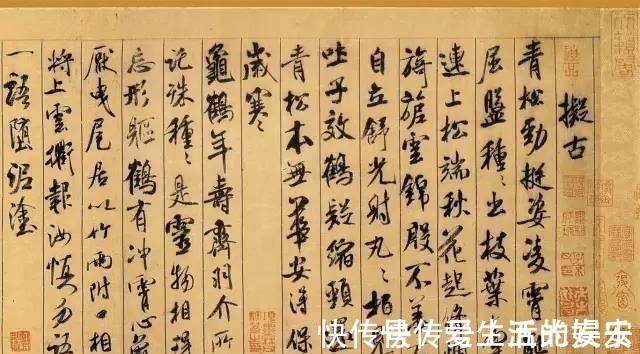 擬古
青松勁挺姿凌霄
屈盤種々出枝葉
連上松端秋花起絳
旖旎雲錦殷不羞
自立舒光射丸々柏
吐子效鶴疑縮頸還
青松本無華安得保
歲寒
龜鶴年壽齊羽介所
託殊種々是靈物相得
忘形軀鶴有沖霄心
厭曳尾居以竹兩附口相
將上雲衢報汝慎勿語
一語墮泥塗
快传号
生活的娱乐